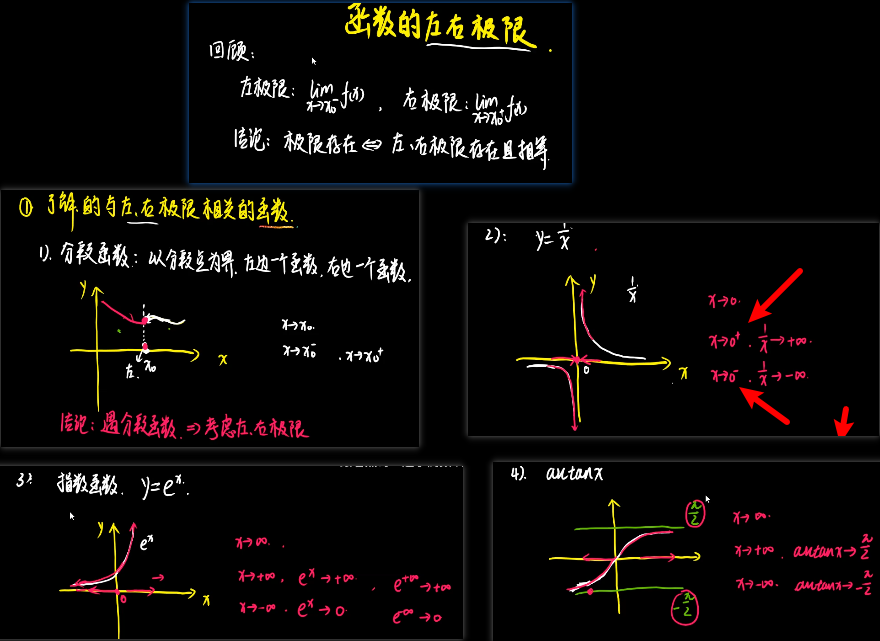 函数的左右极限.
回顾:
左极限: lim x→x₀⁻ f(x) , 右极限: lim x→x₀⁺ f(x)
结论: 极限存在 ⇔ 左、右极限存在且相等.
① 了解的与左、右极限相关的函数.
1). 分段函数: 以分段点为界, 左边一个函数, 右边一个函数.
y
x→x₀.
x→x₀⁻ . x→x₀⁺
x
左. x₀
结论: 遇分段函数 ⇒ 考虑左、右极限
2): y=1/x .
y
1/x
x→0.
x→0⁺ . 1/x→+∞.
x→0⁻ . 1/x→-∞.
0
x
3): 指数函数. y=eˣ.
y
eˣ
x→∞ .
x→+∞, eˣ→+∞ . e^{+∞}→+∞
x→-∞. eˣ→0. e^{∞}→0
0
x
4). arctanx
π/2
x→∞.
x→+∞. arctanx→π/2
x→-∞. arctanx→-π/2
-π/2